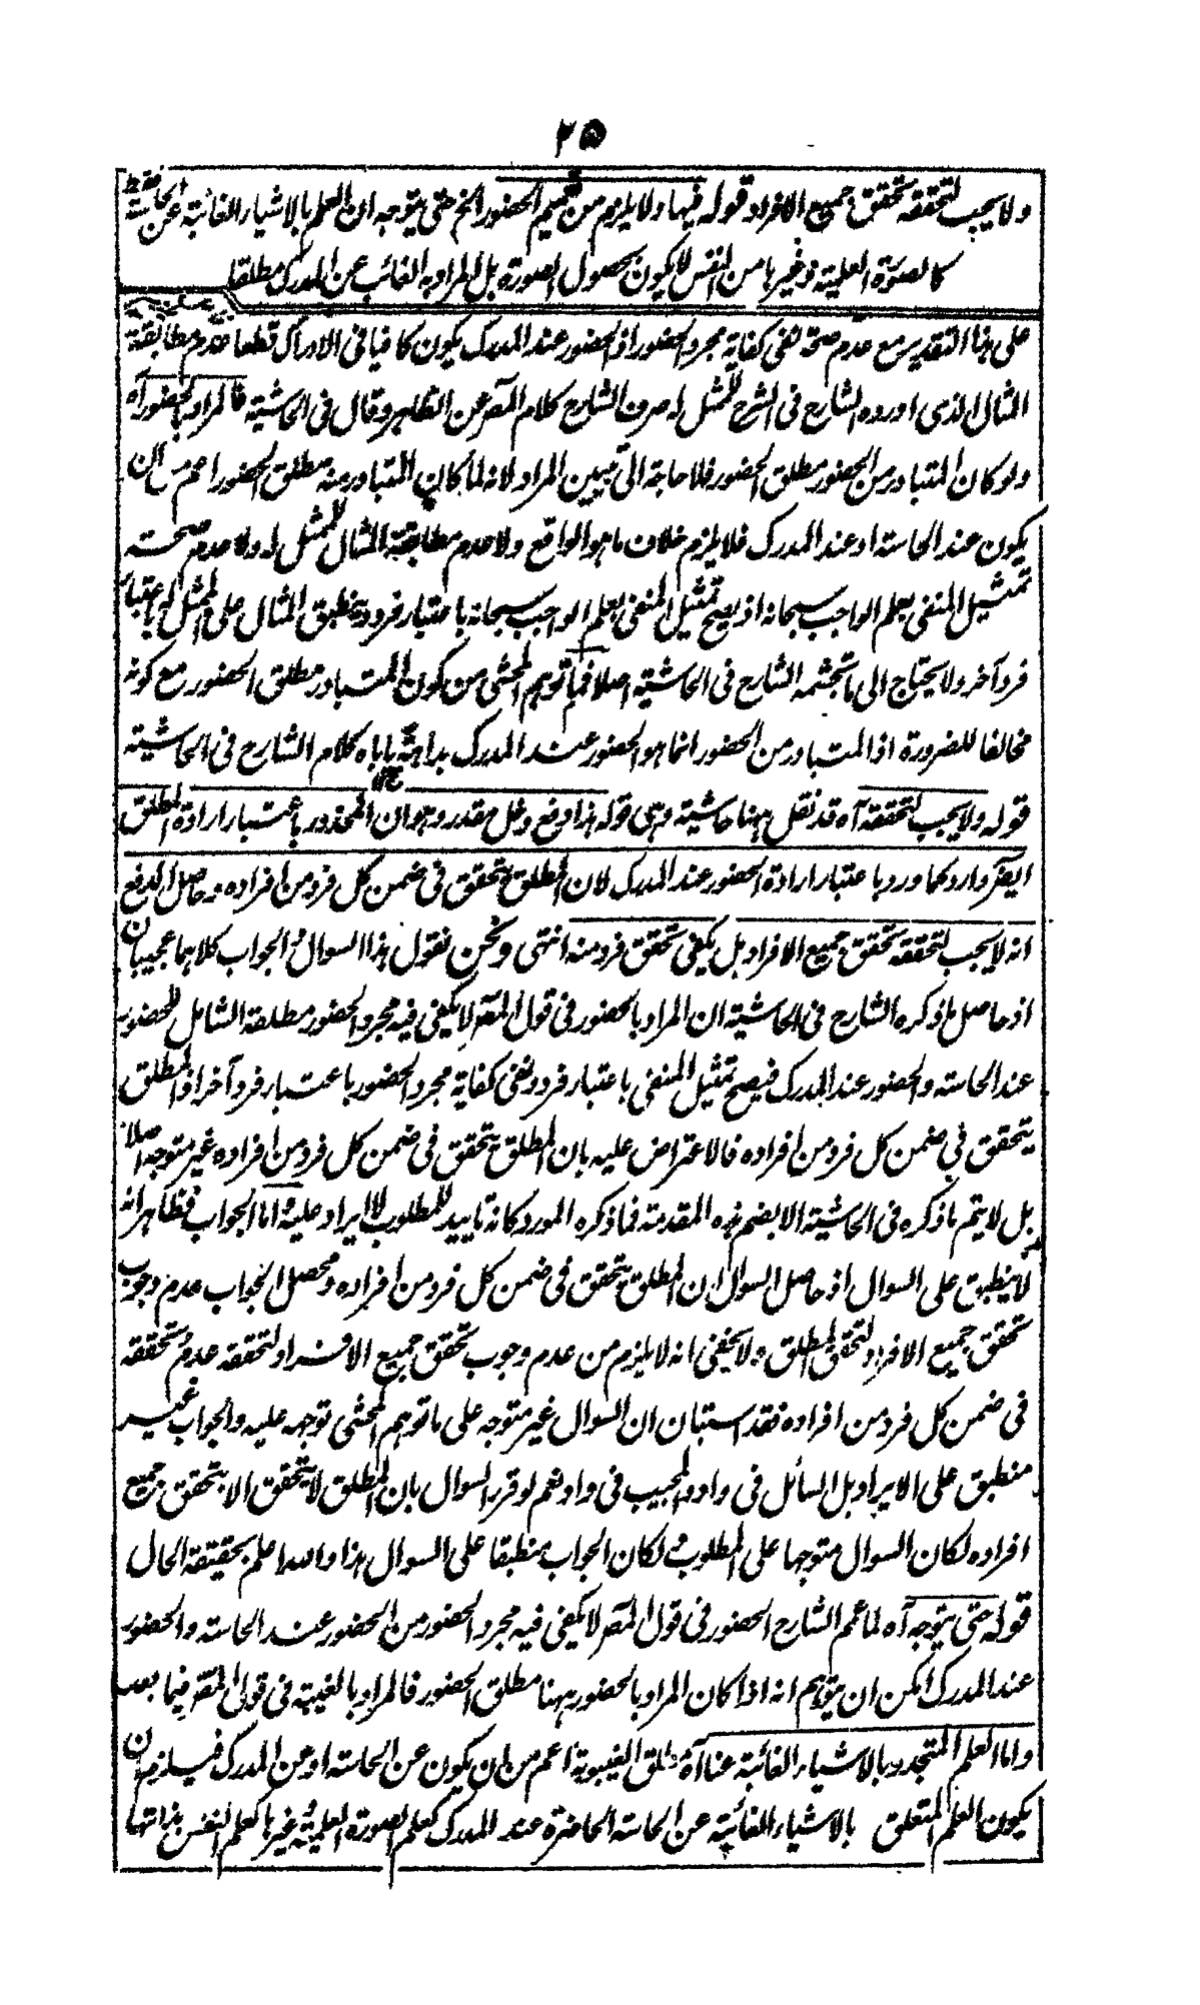 ٢٥
ولا يجب لتحققه تحقق جميع الافراد قوله فيها ولا يلزم من تعميم الحضور الخ حتى يتوجه ان العلم بالاشياء الغائبة عن الحاسة فقط
كالصورة العلمية وغيرها من النفس لا يكون بحصول الصورة بل المراد به الغائب عن المدرك مطلقا
على هذا التقدير مع عدم صحة نفى كفاية مجرد الحضور اذ الحضور عند المدرك يكون كافيا فى الادراك قطعا وعدم مطابقة
المثال الذى اورده الشارح فى الشرح للممثل له صرف الشارح كلام المص عن الظاهر وقال فى الحاشية فالمراد بالحضور آه
ولو كان المتبادر من الحضور مطلق الحضور فلا حاجة الى تبيين المراد لانه لما كان المتبادر منه مطلق الحضور اعم من ان
يكون عند الحاسة او عند المدرك فلا يلزم خلاف ما هو الواقع ولا عدم مطابقة المثال للممثل له ولا عدم صحة
تمثيل المنفى بعلم الواجب سبحانه اذ يصح تمثيل المنفى بعلم الواجب سبحانه باعتبار فرد وينطبق المثال على الممثل له باعتبار
فرد آخر ولا يحتاج الى ما تجشمه الشارح فى الحاشية اصلا فما توهم المحشى من كون المتبادر مطلق الحضور مع كونه
مخالفا للضرورة اذ المتبادر من الحضور انما هو الحضور عند المدرك بداهة ياباه كلام الشارح فى الحاشية
قوله ولا يجب لتحققه آه قد نقل ههنا حاشية وهى قوله هذا دفع دخل مقدر وهو ان المحذور باعتبار ارادة المطلق
ايضا وارد كما ورد باعتبار ارادة الحضور عند المدرك لان المطلق يتحقق فى ضمن كل فرد من افراده وحاصل الدفع
انه لا يجب لتحققه تحقق جميع الافراد بل يكفى تحقق فرد منه انتهى ونحن نقول هذا السوال والجواب كلاهما عجيبان
اذ حاصل ما ذكره الشارح فى الحاشية ان المراد بالحضور فى قول المص لا يكفى فيه مجرد الحضور مطلقه الشامل للحضور
عند الحاسة والحضور عند المدرك فيصح تمثيل المنفى باعتبار فرد ونفى كفاية مجرد الحضور باعتبار فرد آخر اذ المطلق
يتحقق فى ضمن كل فرد من افراده فالاعتراض عليه بان المطلق يتحقق فى ضمن كل فرد من افراده غير متوجه اصلا
بل لا يتم ما ذكره فى الحاشية الا بضم هذه المقدمة فما ذكره المورد كانه تاييد للمطلوب لا ايراد عليه واما الجواب فظاهر انه
لا ينطبق على السوال اذ حاصل السوال ان المطلق يتحقق فى ضمن كل فرد من افراده ومحصل الجواب عدم وجوب
تحقق جميع الافراد لتحقق المطلق ولا يخفى انه لا يلزم من عدم وجوب تحقق جميع الافراد لتحققه عدم تحققه
فى ضمن كل فرد من افراده فقد استبان ان السوال غير متوجه على ما توهم المحشى توجهه عليه والجواب غير
منطبق على الايراد بل السائل فى واد والمجيب فى واد نعم لو قرر السوال بان المطلق لا يتحقق الا بتحقق جميع
افراده لكان السوال متوجها على المطلوب ولكان الجواب منطبقا على السوال هذا والله اعلم بحقيقة الحال
قوله حتى يتوجه آه لما عمم الشارح الحضور فى قول المص لا يكفى فيه مجرد الحضور من الحضور عند الحاسة والحضور
عند المدرك امكن ان يتوهم انه اذا كان المراد بالحضور ههنا مطلق الحضور فالمراد بالغيبة فى قول المص فيما بعد
واما العلم المتجدد بالاشياء الغائبة عنا آه مطلق الغيبوبة اعم من ان يكون عن الحاسة او عن المدرك فيلزم ان
يكون العلم المتعلق بالاشياء الغائبة عن الحاسة الحاضرة عند المدرك كعلم الصورة العلمية وغيرها كعلم النفس بذاتها